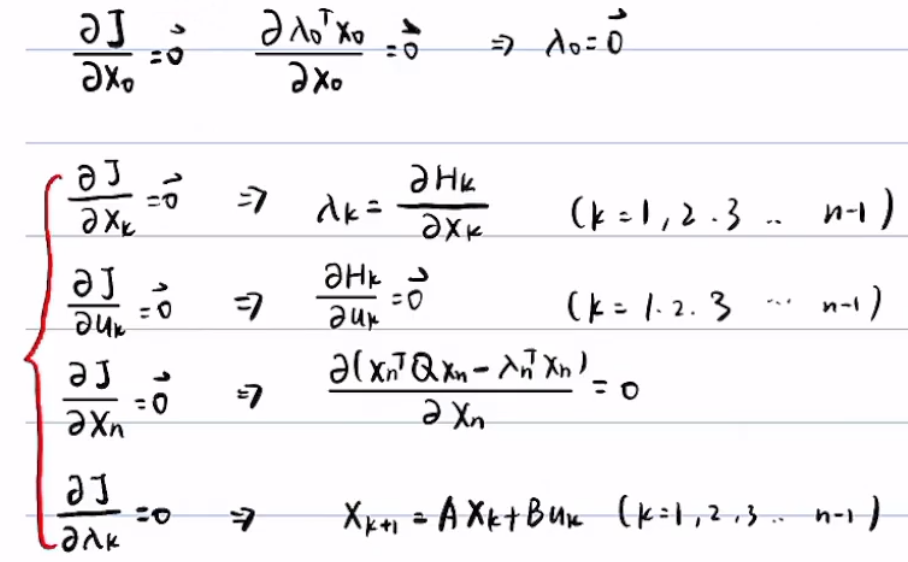 ∂J/∂x₀ = 0⃗    ∂λ₀ᵀx₀/∂x₀ = 0⃗    ⇒ λ₀ = 0⃗
∂J/∂xₖ = 0⃗    ⇒    λₖ = ∂Hₖ/∂xₖ    (k = 1, 2 . 3 .. n-1)
∂J/∂uₖ = 0⃗    ⇒    ∂Hₖ/∂uₖ = 0⃗    (k = 1. 2. 3 ... n-1)
∂J/∂xₙ = 0⃗    ⇒    ∂(xₙᵀQxₙ - λₙᵀxₙ)/∂xₙ = 0
∂J/∂λₖ = 0    ⇒    xₖ₊₁ = Axₖ + Buₖ (k=1, 2, 3 .. n-1)